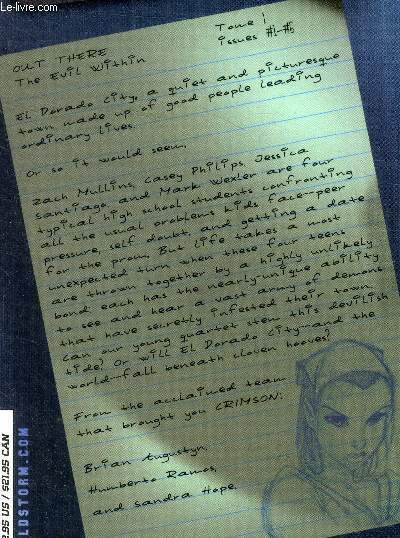 © Le-livre.com
OUT THERE
The Evil Within
Tome 1
issues #1-#6
El Dorado City, a quiet and picturesque
town made up of good people leading
ordinary lives.
Or so it would seem.
Zach Mullins, Casey Philips, Jessica
Santiago and Mark Wexler are four
typical high school students confronting
all the usual problems kids face—peer
pressure, self doubt, and getting a date
for the prom. But life takes a most
unexpected turn when these four teens
are thrown together by a highly unlikely
bond each has the nearly-unique ability
to see and hear a vast army of demons
that have secretly infested their town.
Can our young quartet stem this devilish
tide? Or will El Dorado City—and the
world—fall beneath cloven hooves?
From the acclaimed team
that brought you CRIMSON:
Brian Augustyn,
Humberto Ramos,
and Sandra Hope.
.95 US / $21.95 CAN
LDSTORM.COM